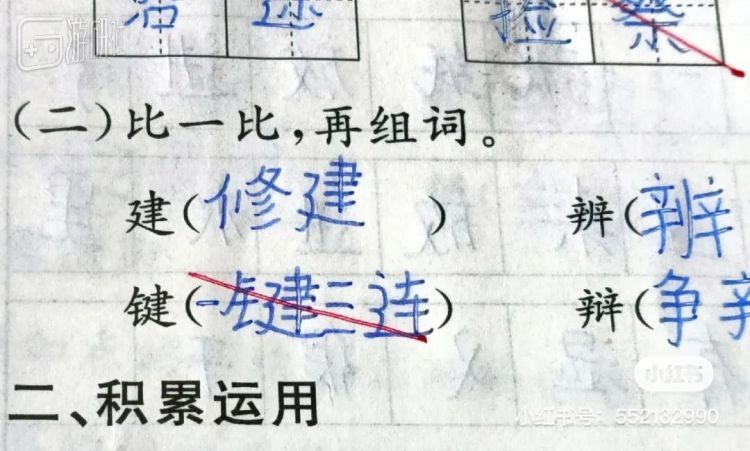 游研社
捡 察
(二)比一比,再组词。
建(修建) 辨(辨
键(一键三连) 辩(争辩
小红书
二、积累运用
小红书号: 552132990